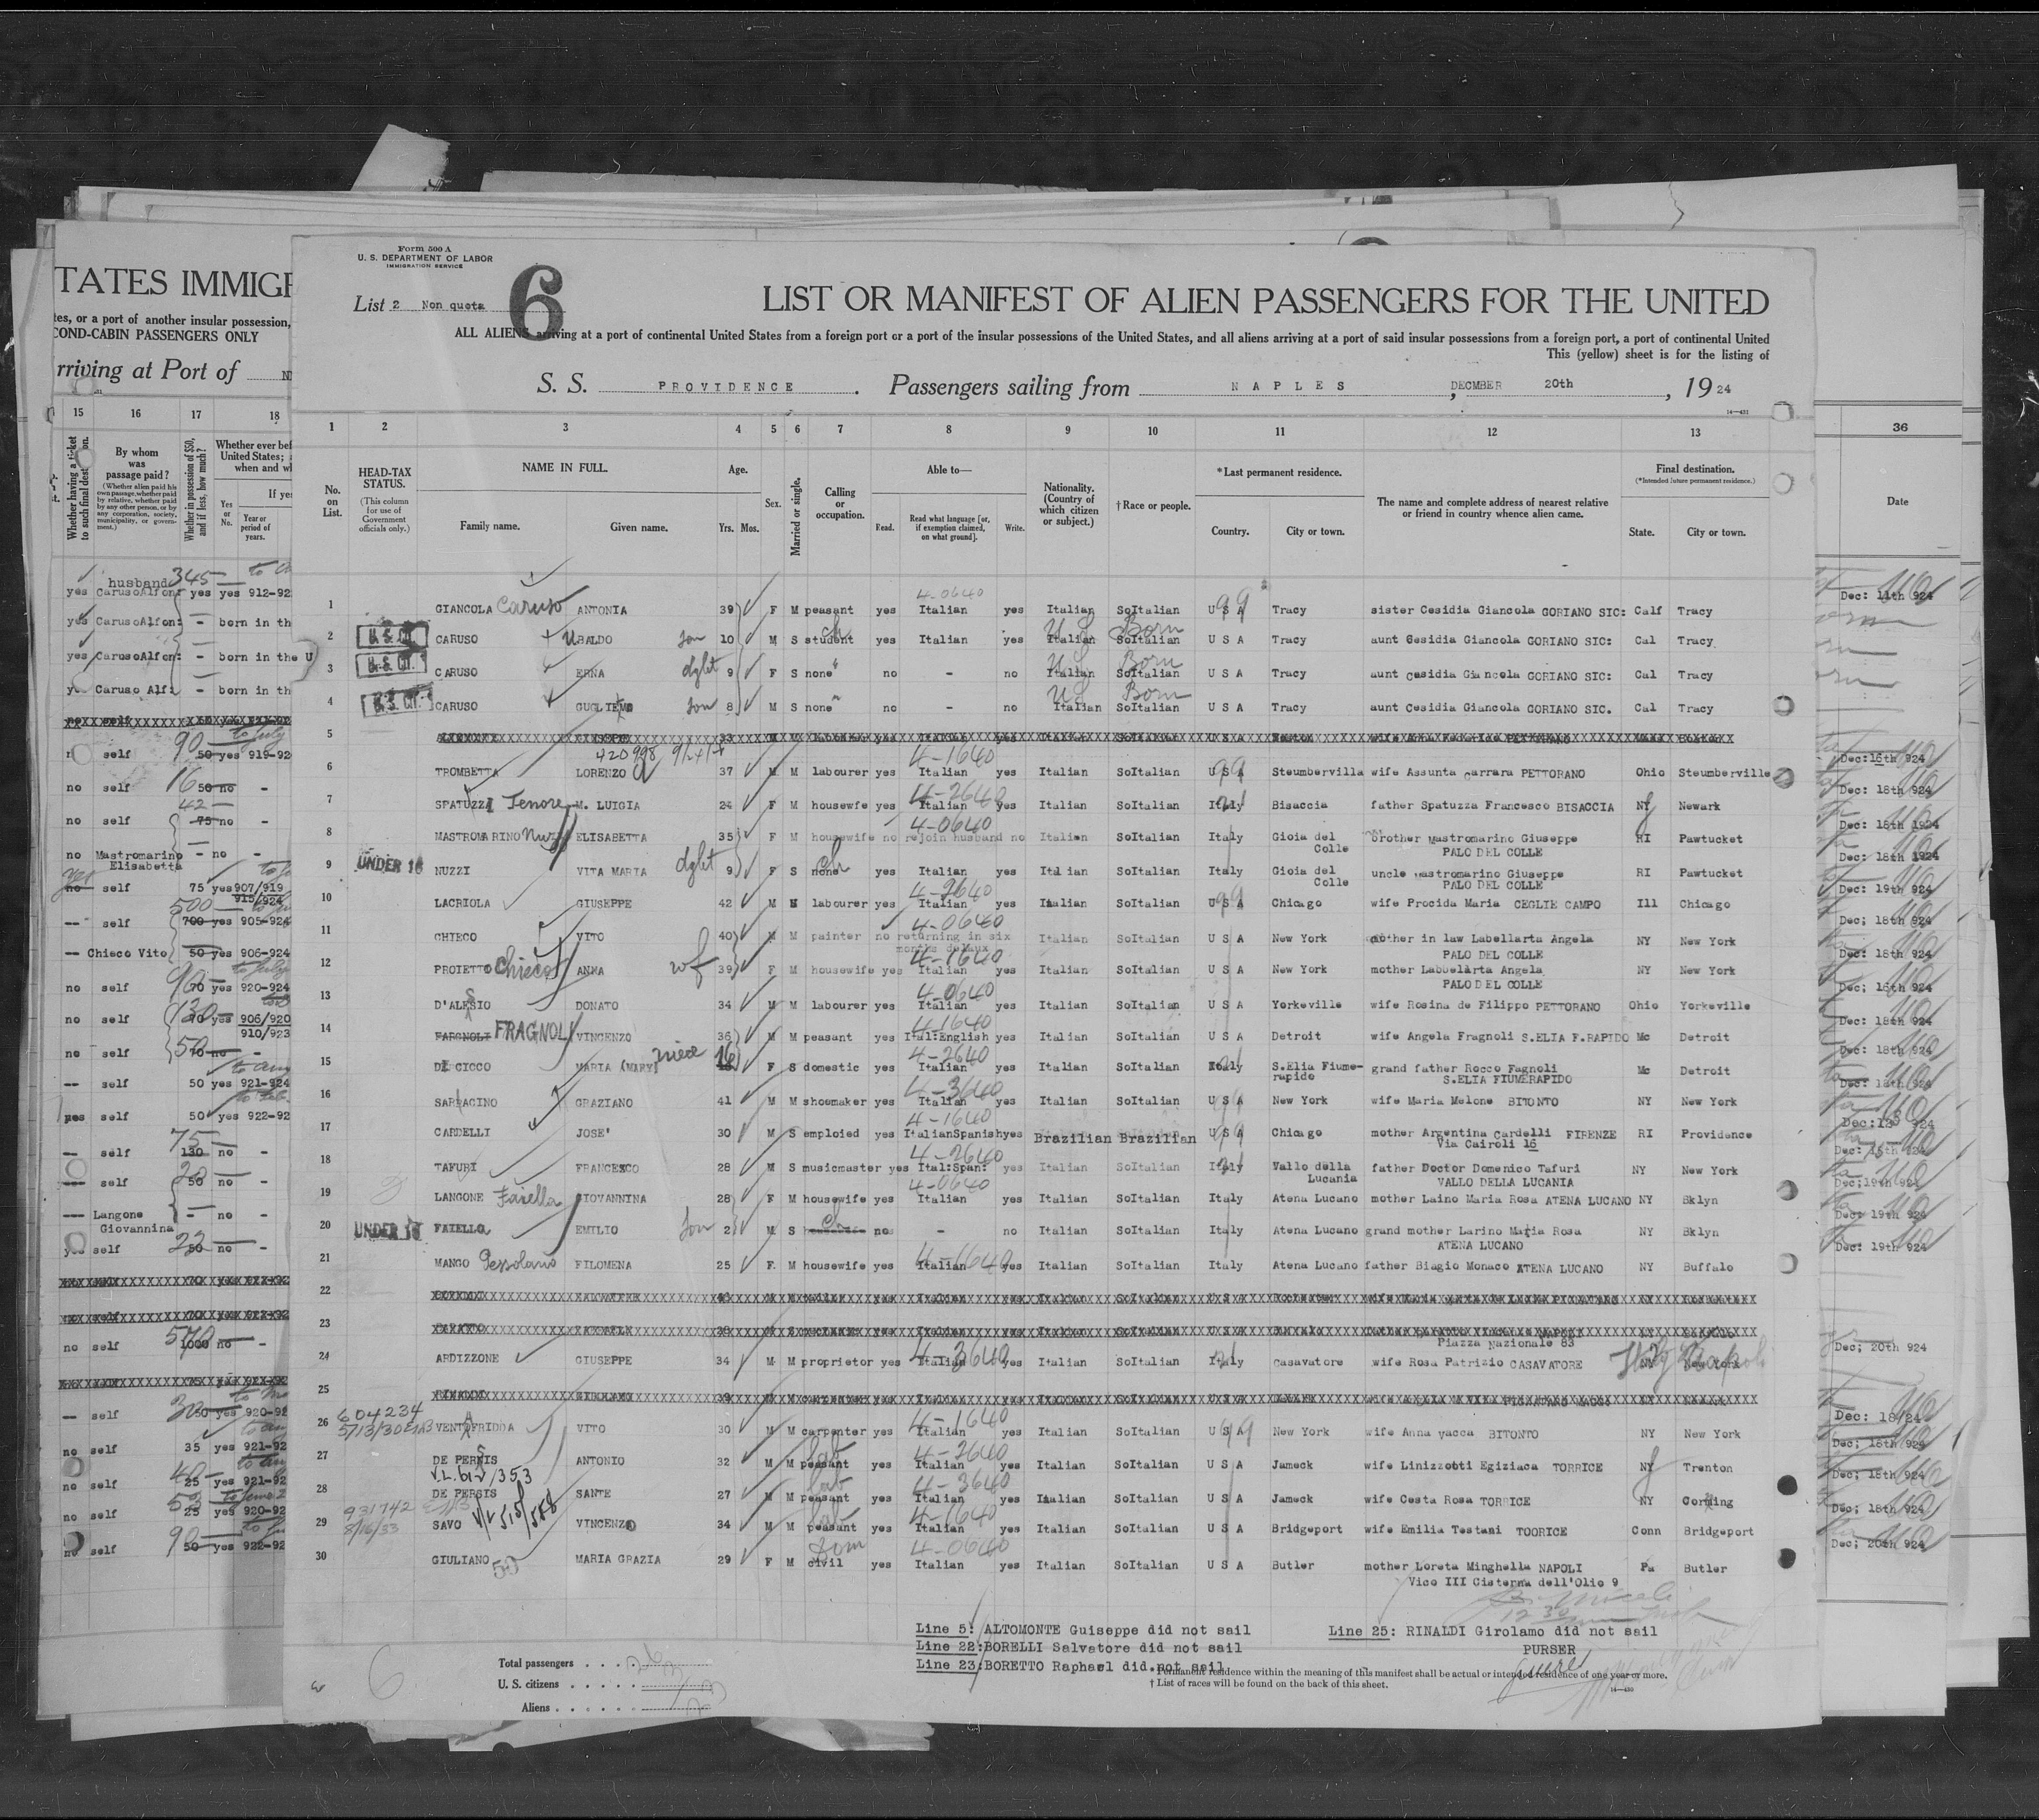 Form 500 A
U. S. DEPARTMENT OF LABOR
IMMIGRATION SERVICE
List 2 Non quota 6
LIST OR MANIFEST OF ALIEN PASSENGERS FOR THE UNITED
ALL ALIENS arriving at a port of continental United States from a foreign port or a port of the insular possessions of the United States, and all aliens arriving at a port of said insular possessions from a foreign port, a port of continental United
This (yellow) sheet is for the listing of
S. S. PROVIDENCE. Passengers sailing from NAPLES, DECMBER 20th, 1924
TATES IMMIGR
tes, or a port of another insular possession,
COND-CABIN PASSENGERS ONLY
rriving at Port of
15 16 17 18
Whether having a ticket to such final destination.
By whom was passage paid?
(Whether alien paid his own passage, whether paid by relative, whether paid by any other person, or by any corporation, society, municipality, or government.)
Whether in possession of $50, and if less, how much?
Whether ever bef
United States;
when and wh
Yes or No.
If yes
Year or period of years.
1 2 3 4 5 6 7 8 9 10 11 12 13
36
Date
No. on List.
HEAD-TAX STATUS.
(This column for use of Government officials only.)
NAME IN FULL.
Family name. Given name.
Age.
Yrs. Mos.
Sex.
Married or single.
Calling or occupation.
Able to—
Read. Read what language [or, if exemption claimed, on what ground]. Write.
Nationality. (Country of which citizen or subject.)
†Race or people.
*Last permanent residence.
Country. City or town.
The name and complete address of nearest relative or friend in country whence alien came.
Final destination.
(*Intended future permanent residence.)
State. City or town.
1 GIANCOLA Caruso ANTONIA 39 F M peasant yes 4-0640 Italian yes Italian SoItalian U S A Tracy sister Cesidia Giancola GORIANO SIC: Calf Tracy
2 U.S. CIT. CARUSO UBALDO son 10 M S student yes Italian yes Italian US SoItalian Born U S A Tracy aunt Cesidia Giancola GORIANO SIC: Cal Tracy
3 U.S. CIT. CARUSO ERNA dght 9 F S none no - no Italian US SoItalian Born U S A Tracy aunt Cesidia Giancola GORIANO SIC: Cal Tracy
4 U.S. CIT. CARUSO GUGLIEMO son 8 M S none no - no Italian US SoItalian Born U S A Tracy aunt Cesidia Giancola GORIANO SIC. Cal Tracy
5
6 TROMBETTA LORENZO 420998 37 M M labourer yes 4-1640 Italian yes Italian SoItalian U S A Steumberville wife Assunta Carrara PETTORANO Ohio Steumberville
7 SPATUZZI Tenore M. LUIGIA 24 F M housewfe yes 4-2640 Italian yes Italian SoItalian Italy Bisaccia father Spatuzza Francesco BISACCIA NY Newark
8 MASTROMARINO Nuzzi ELISABETTA 35 F M housewife no 4-0640 rejoin husband no Italian SoItalian Italy Gioia del Colle brother Mastromarino Giuseppe PALO DEL COLLE RI Pawtucket
9 UNDER 16 NUZZI VITA MARIA dght 9 F S none ch yes Italian yes Italian SoItalian Italy Gioia del Colle uncle Mastromarino Giuseppe PALO DEL COLLE RI Pawtucket
10 LACRIOLA GIUSEPPE 42 M M labourer yes 4-2640 Italian yes Italian SoItalian U S A Chicago wife Procida Maria CEGLIE CAMPO Ill Chicago
11 CHIECO VITO 40 M M painter no 4-0640 returning in six months Italian SoItalian U S A New York mother in law Labellarta Angela PALO DEL COLLE NY New York
12 PROIETTO Chieco ANNA wf 39 F M housewife yes 4-1640 Italian yes Italian SoItalian U S A New York mother Labbelarta Angela PALO DEL COLLE NY New York
13 D'ALESIO DONATO 34 M M labourer yes 4-0640 Italian yes Italian SoItalian U S A Yorkeville wife Rosina de Filippo PETTORANO Ohio Yorkeville
14 FARGNOLI FRAGNOLI VINCENZO 36 M M peasant yes 4-1640 Ital:English yes Italian SoItalian U S A Detroit wife Angela Fragnoli S.ELIA F.RAPIDO Mc Detroit
15 DE CICCO MARIA (MARY) niece 16 F S domestic yes 4-2640 Italian yes Italian SoItalian Italy S.Elia Fiume-rapido grand father Rocco Fagnoli S.ELIA FIUMERAPIDO Mc Detroit
16 SARRACINO GRAZIANO 41 M M shoemaker yes 4-3640 Italian yes Italian SoItalian U S A New York wife Maria Melone BITONTO NY New York
17 CARDELLI JOSE' 30 M S emploied yes 4-1640 ItalianSpanish yes Brazilian Brazilian U S A Chicago mother Argentina Cardelli FIRENZE Via Cairoli 16 RI Providence
18 TAFURI FRANCESCO 28 M S musicmaster yes 4-2640 Ital:Span: yes Italian SoItalian Italy Vallo della Lucania father Doctor Domenico Tafuri VALLO DELLA LUCANIA NY New York
19 LANGONE Faiella GIOVANNINA 28 F M housewife yes 4-0640 Italian yes Italian SoItalian Italy Atena Lucano mother Laino Maria Rosa ATENA LUCANO NY Bklyn
20 UNDER 16 FAIELLO EMILIO son 2 M S ch no - no Italian SoItalian Italy Atena Lucano grand mother Larino Maria Rosa ATENA LUCANO NY Bklyn
21 MANGO Pessolano FILOMENA 25 F M housewife yes 4-1640 Italian yes Italian SoItalian Italy Atena Lucano father Biagio Monaco ATENA LUCANO NY Buffalo
22
23 Piazza Nazionale 83
24 ARDIZZONE GIUSEPPE 34 M M proprietor yes 4-3640 Italian yes Italian SoItalian Italy Casavatore wife Rosa Patrizio CASAVATORE NY New York Italy Napoli
25
604234
5/13/30
26 VENTAFRIDDA VITO 30 M M carpenter yes 4-1640 Italian yes Italian SoItalian U S A New York wife Anna Vacca BITONTO NY New York
27 DE PERSIS ANTONIO 32 M M peasant lab yes 4-2640 Italian yes Italian SoItalian U S A Jameck wife Linizzotti Egiziaca TORRICE NY Trenton
28 DE PERSIS SANTE 27 M M peasant lab yes 4-3640 Italian yes Italian SoItalian U S A Jameck wife Cesta Rosa TORRICE NY Corning
931742
8/16/33
29 SAVO VINCENZO 34 M M peasant lab yes 4-1640 Italian yes Italian SoItalian U S A Bridgeport wife Emilia Testani TOORICE Conn Bridgeport
30 GIULIANO MARIA GRAZIA 29 F M civil dom yes 4-0640 Italian yes Italian SoItalian U S A Butler mother Loreta Minghella NAPOLI Vico III Cisterna dell'Olio 9 Pa Butler
Line 5: ALTOMONTE Guiseppe did not sail
Line 22: BORELLI Salvatore did not sail
Line 23: BORETTO Raphael did not sail
Line 25: RINALDI Girolamo did not sail
PURSER
Total passengers
U. S. citizens
Aliens
*Permanent residence within the meaning of this manifest shall be actual or intended residence of one year or more.
†List of races will be found on the back of this sheet.
14—430
6
husband 345
yes CarusoAlfon: yes yes 912-92
yes CarusoAlfon: - born in th
yes CarusoAlfon: - born in the U
yes Caruso Alf: - born in th
self 90 50 yes 919-92
no self 16 50 no -
no self 42 75 no -
no Mastromarino Elisabetta - no -
yes no self 75 yes 907/919 915/924
-- self 500 700 yes 905-924
-- Chieco Vito 50 yes 906-924
no self 90 70 yes 920-924
no self 130 70 yes 906/920 910/923
no self 50 70 no -
-- self 50 yes 921-924
yes self 50 yes 922-92
-- self 75 130 no -
--- self 20 50 no -
--- Langone Giovannina - no -
yes self 22 50 no -
no self 570 1000 no -
-- self 30 50 yes 920-92
no self 35 yes 921-92
no self 40 25 yes 921-92
no self 53 25 yes 920-92
no self 90 50 yes 922-92
Dec: 11th 924
Dec:16th 924
Dec: 18th 924
Dec: 18th 1924
Dec: 18th 1924
Dec: 19th 924
Dec; 18th 924
Dec: 18th 924
Dec; 16th 924
Dec: 18th 924
Dec: 18th 924
Dec: 18th 924
Dec:13 924
Dec: 15th 924
Dec;19th 924
Dec: 19th 924
Dec: 19th 924
Dec; 20th 924
Dec: 18/24
Dec; 18th 924
Dec; 18th 924
Dec; 18th 924
Dec; 20th 924